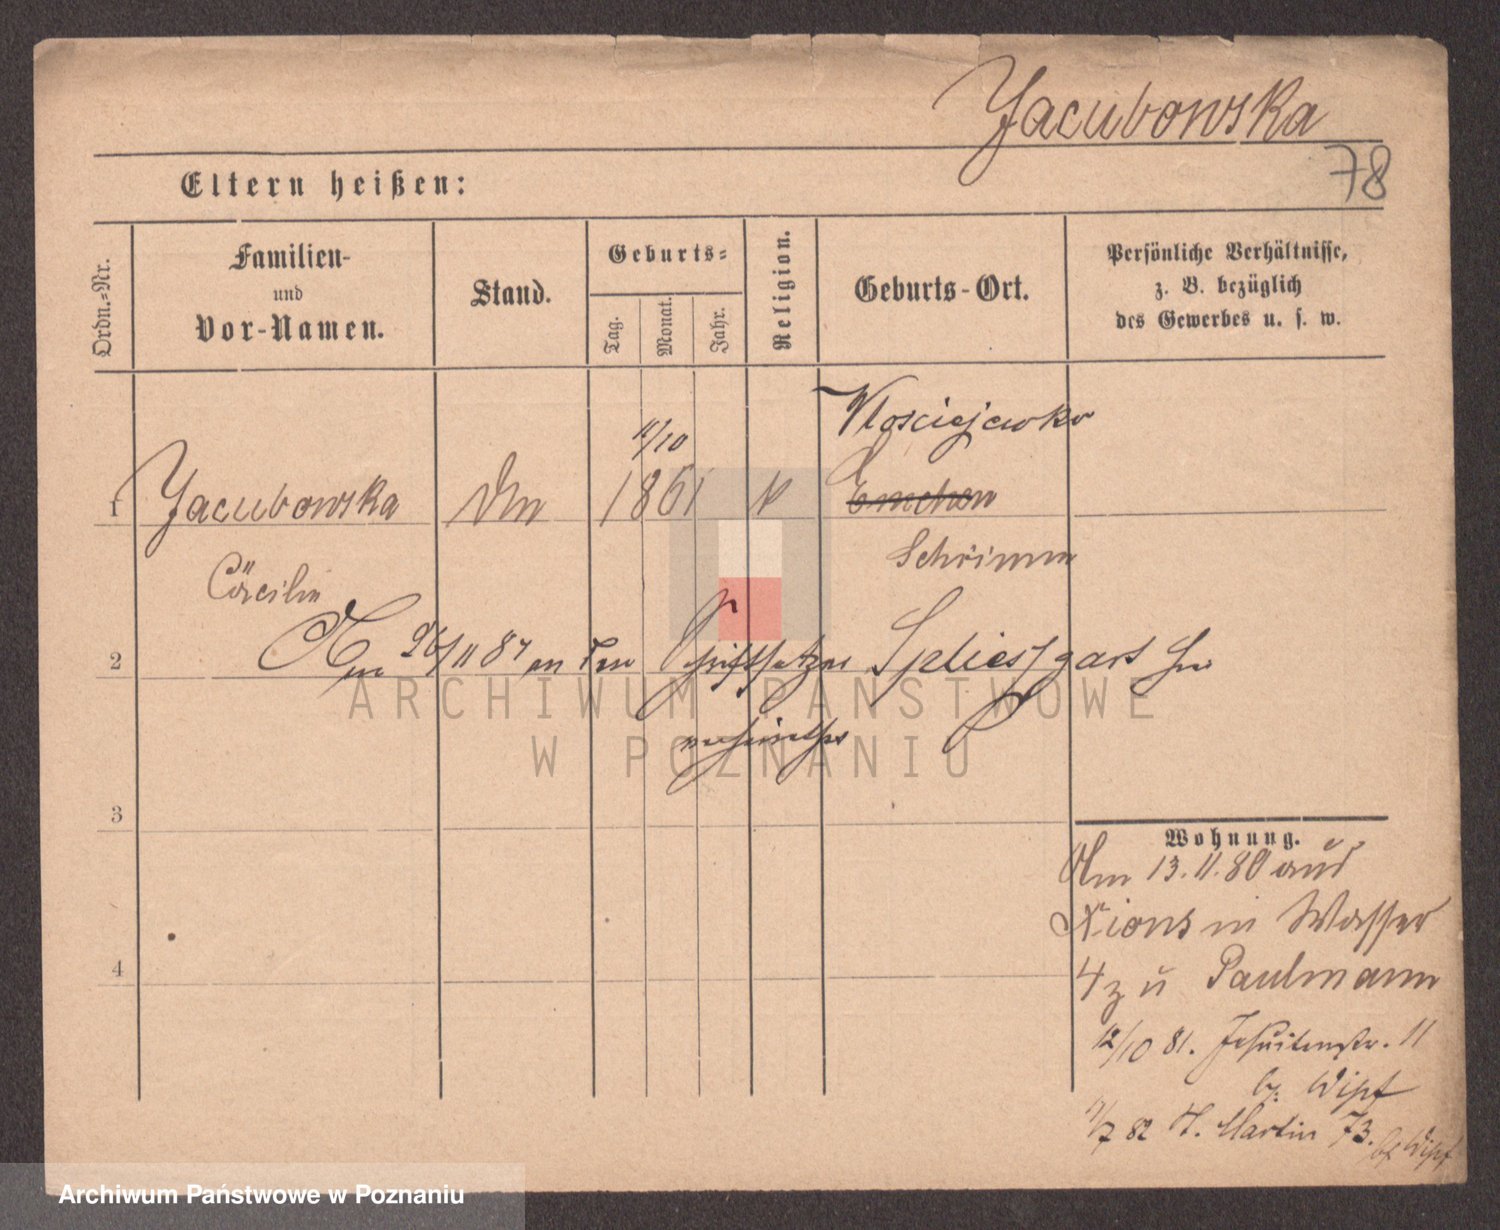 Jacubowska
78
Eltern heißen:
Ordn.-Nr.
Familien-
und
Vor-Namen.
Stand.
Geburts-
Tag.
Monat.
Jahr.
Religion.
Geburts-Ort.
Persönliche Verhältnisse,
z. B. bezüglich
des Gewerbes u. s. w.
Wlosciejewko
11/10
1 Jacubowska 1861 k Emchen
Schrimm
Cäcilie
2 Am 26/11 87 an den Schriftsetzer Spliesgart hier
verheirathet
ARCHIWUM PAŃSTWOWE
W POZNANIU
3
Wohnung.
Am 13.11.80 aus
Xions in Wasser
4 zu Paulmann
4
12/10 81. Jesuitenstr. 11
b. Wipf
1/7 82 St. Martin 73. b. Wipf
Archiwum Państwowe w Poznaniu